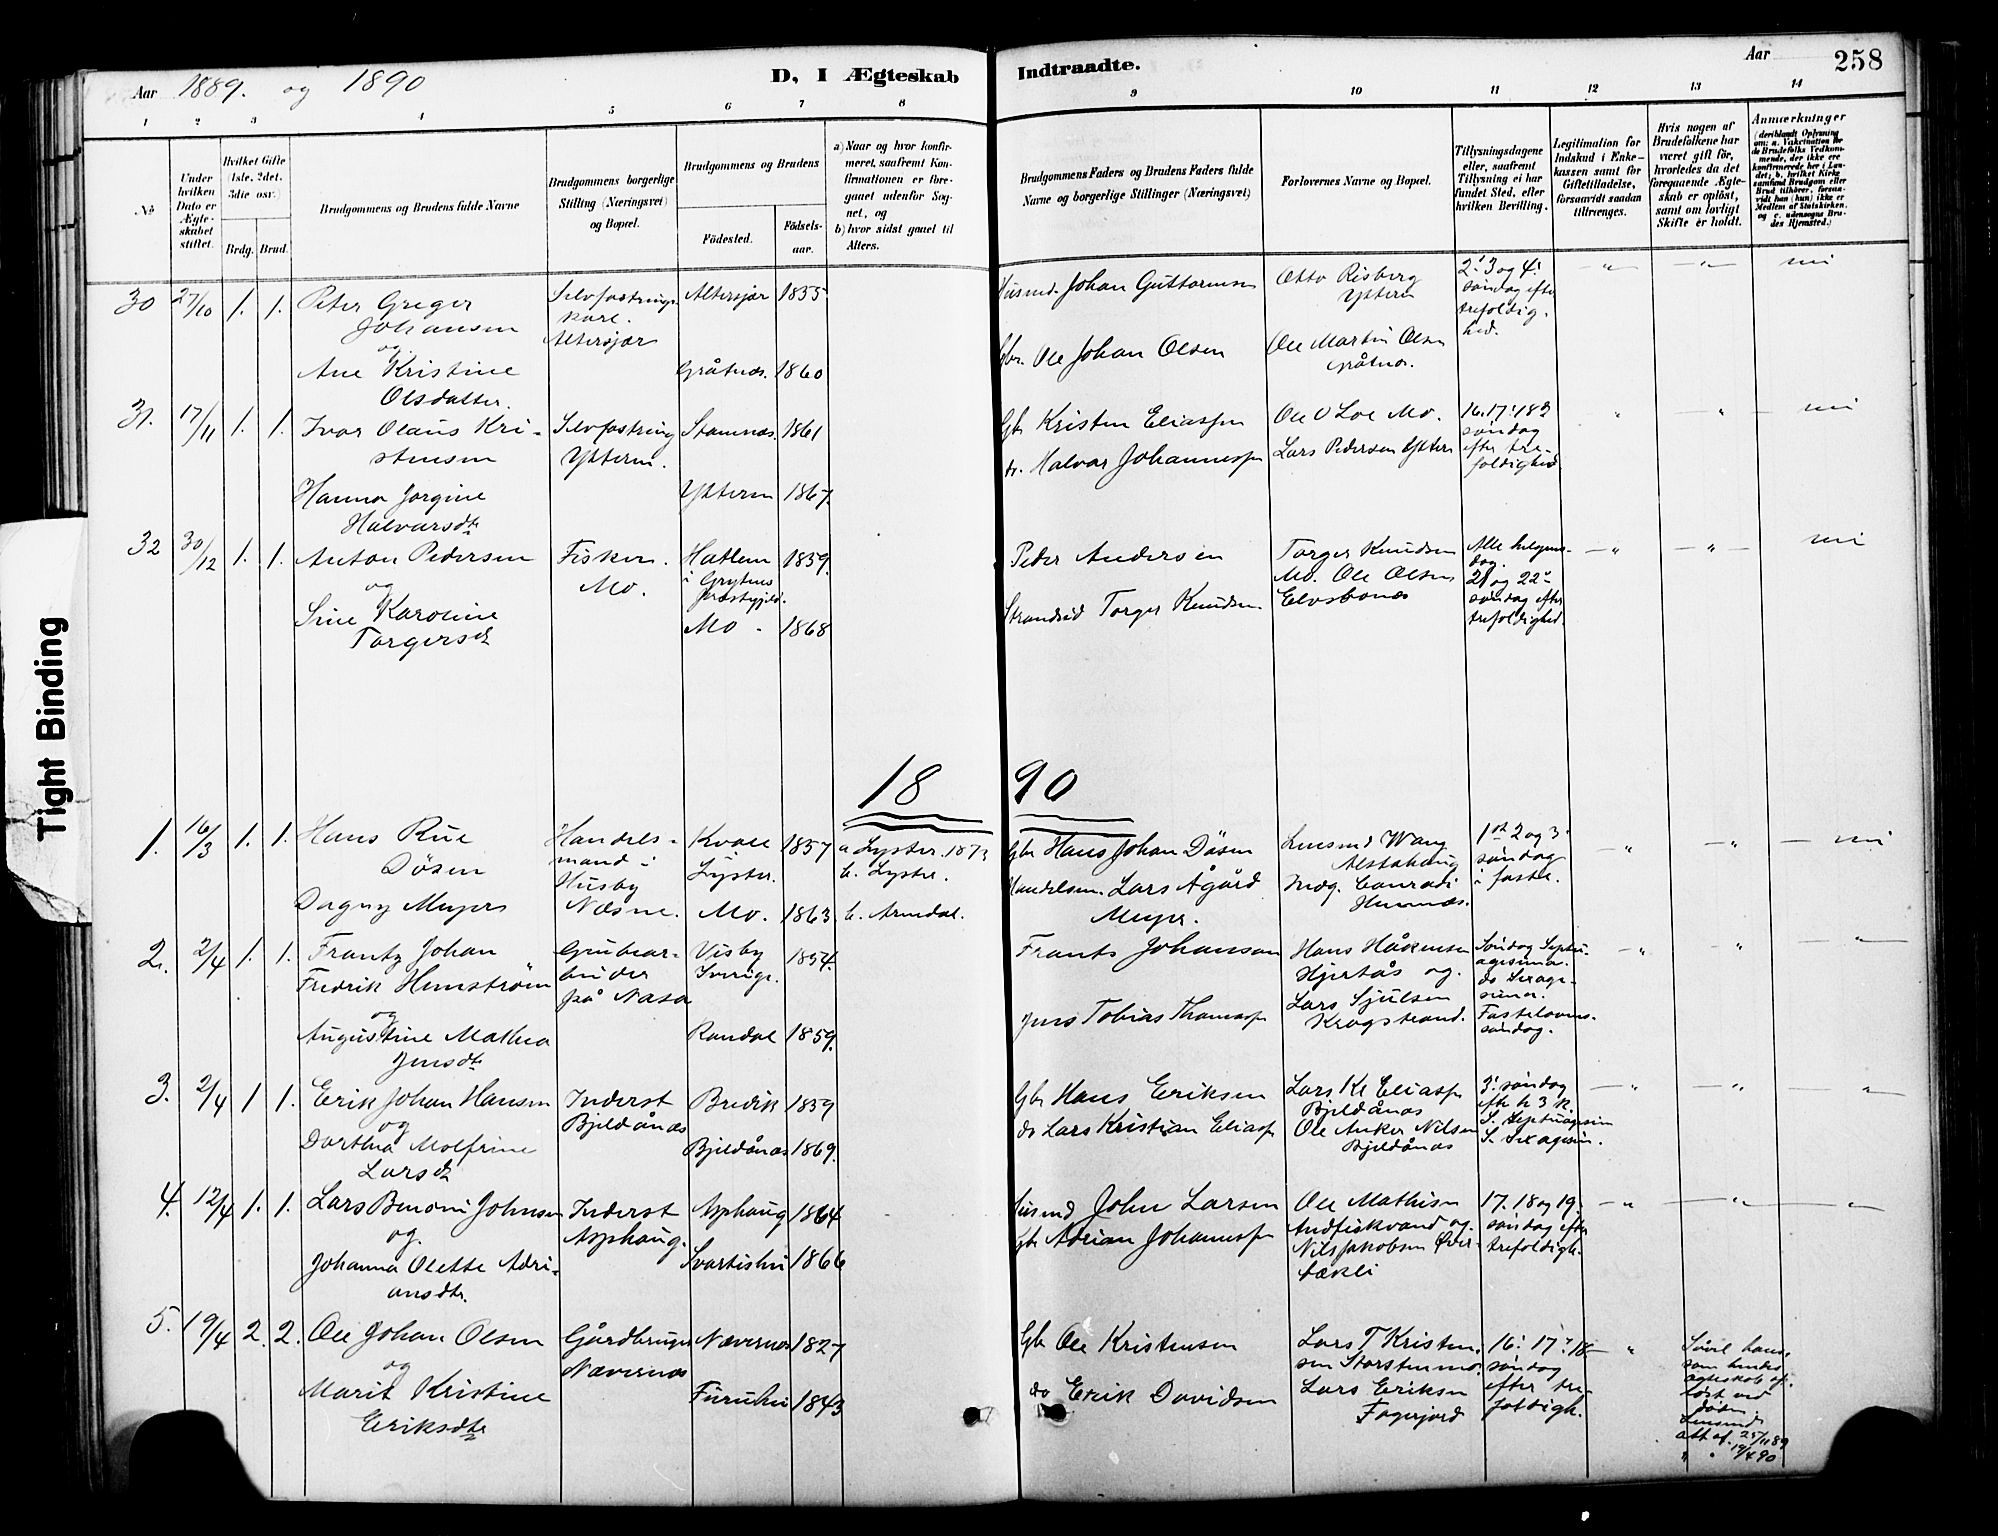 Aar 1889. og 1890
D, I Ægteskab
Indtraadte.
Aar
258
1 2 3 4 5 6 7 8
9 10 11 12 13 14
No
Under hvilken Dato er Ægteskabet stiftet.
Hvilket Gifte (1ste, 2det, 3die osv.)
Brdg. Brud.
Brudgommens og Brudens fulde Navne
Brudgommens borgerlige Stilling (Næringsvei) og Bopæl.
Brudgommens og Brudens
Fødested.
Fødsels-aar.
a) Naar og hvor konfirmeret, saafremt Konfirmationen er foregaaet udenfor Sognet, og
b) hvor sidst gaaet til Alters.
Brudgommens Faders og Brudens Faders fulde Navne og borgerlige Stillinger (Næringsvei)
Forlovernes Navne og Bopæl.
Tillysningsdagene eller, saafremt Tillysning ei har fundet Sted, efter hvilken Bevilling.
Legitimation for Indskud i Enkekassen samt for Giftetilladelse, forsaavidt saadan tiltrænges.
Hvis nogen af Brudefolkene har været gift før, hvorledes da det foregaaende Ægteskab er opløst, samt om lovligt Skifte er holdt.
Anmærkninger
30 27/10 1. 1. Peter Greger
Johansen
og
Ane Kristine
Olsdatter.
Selvfostrings
karl.
Altersjær
Altersjær 1855
Gråtnæs. 1860
Husmd. Johan Guttormsen
Gbr. Ole Johan Olsen
Otto Risberg
Ytteren
Ole Martin Olsen
Gråtnæs.
2. 3 og 4.
søndag efter
trefoldig-
hed.
31. 17/11 1. 1. Ivar Olaus Kri-
stensen
Hanna Jorgine
Halvarsdtr
Selvfostring
Ytteren.
Stamnæs. 1861
Ytteren 1867.
Gbr Kristen Eliassen
do. Halvar Johannessen
Ole O Loe Mo.
Lars Pedersen Ytteren
16. 17. 18d
søndag
efter tre-
foldighed
32 30/12 1. 1. Anton Pedersen
og
Sine Karoline
Torgersd
Fisker.
Mo.
Hatlem 1859.
i Grytens
Præstegjeld.
Mo. 1868
Peder Andersen
Strandsid Torger Knudsen
Torger Knudsen
Mo. Ole Olsen
Elvsbones
Alle helgens-
dag.
21 og 22e
søndag efter
trefoldighed.
18 90
1. 16/3 1. 1. Hans Rue
Døsen
Dagny Meyer
Handels-
mand i
Husby
Næsne.
Kvale 1857
Lyster.
Mo. 1863
a Lyster. 1873
b. Lyster.
b. Arendal.
Gbr Hans Johan Døsen
Handelsm. Lars Ågård
Meyer.
Lensmd Wang
Alstahaug
Indg. Conradi
Hemnæs.
1st 2 og 3
søndag
i faste.
2. 2/4 1. 1. Frantz Johan
Fredrik Hemström
og
Augustine Mathea
Jensdtr
Grubear-
beider
på Nasa
Visby 1854.
Sverige.
Randal 1859.
Frants Johanson
Jens Tobias Thomassen
Hans Håkensen
Hjertås og
Lars Sjulsen
Kragstrand.
Søndag Septu-
agesima.
do Sexage-
sima.
Fastelavns-
søndag.
3. 2/4 1 1. Erik Johan Hansen
og
Dorthea Molfrine
Larsd
Inderst
Bjeldånæs
Bredik 1859
Bjeldånæs 1869.
Gbr Hans Eriksen
do Lars Kristian Eliassen
Lars Kr Eliassen
Bjeldånæs
Ole Anker Nilsen
Bjeldånæs
3. søndag
efter h 3 k.
S. Septuagesim
S. Sexagesim.
4. 12/4 1. 1. Lars Benoni Johnsen
og.
Johanna Olette Adri-
ansdtr.
Inderst
Asphaug.
Asphaug 1864
Svartishei 1866
Husmd John Larsen
Gbr Adrian Johannessen
Ole Mathisen
Andfiskvand og.
Nils Jakobsen Øver-
tækli
17. 18 og 19.
søndag efter
trefoldigh.
5. 19/4 2. 2. Ole Johan Olsen
og
Marit Kristine
Eriksdtr
Gårdbruger
Nævernæs
Nævernæs 1827
Furuhei 1843
Gbr Ole Kristensen
do Erik Davidsen
Lars T Kristen-
sen Storstenmo.
Lars Eriksen
Fagerjord
16. 17. 18
søndag
efter tre-
foldigh.
Såvel hans
som hendes
ægteskab op-
løst ved
døden.
Lensmd
att af. 25/11 89
" " 19/4 90
Tight Binding